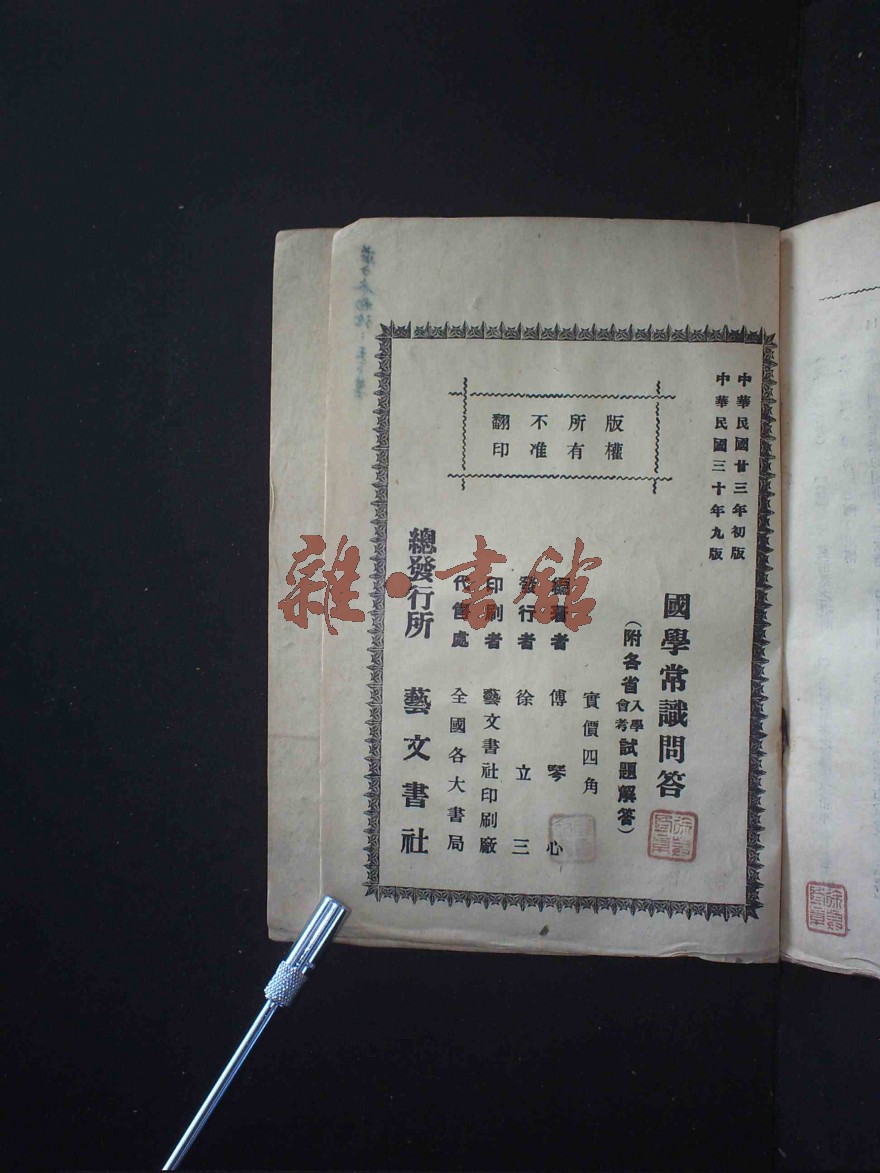 中華民國廿三年初版
中華民國三十年九版
版權
所有
不准
翻印
國學常識問答
(附各省入學會考試題解答)
實價四角
編著者 傅琴心
發行者 徐立三
印刷者 藝文書社印刷廠
代售處 全國各大書局
總發行所 藝文書社
雜·書館